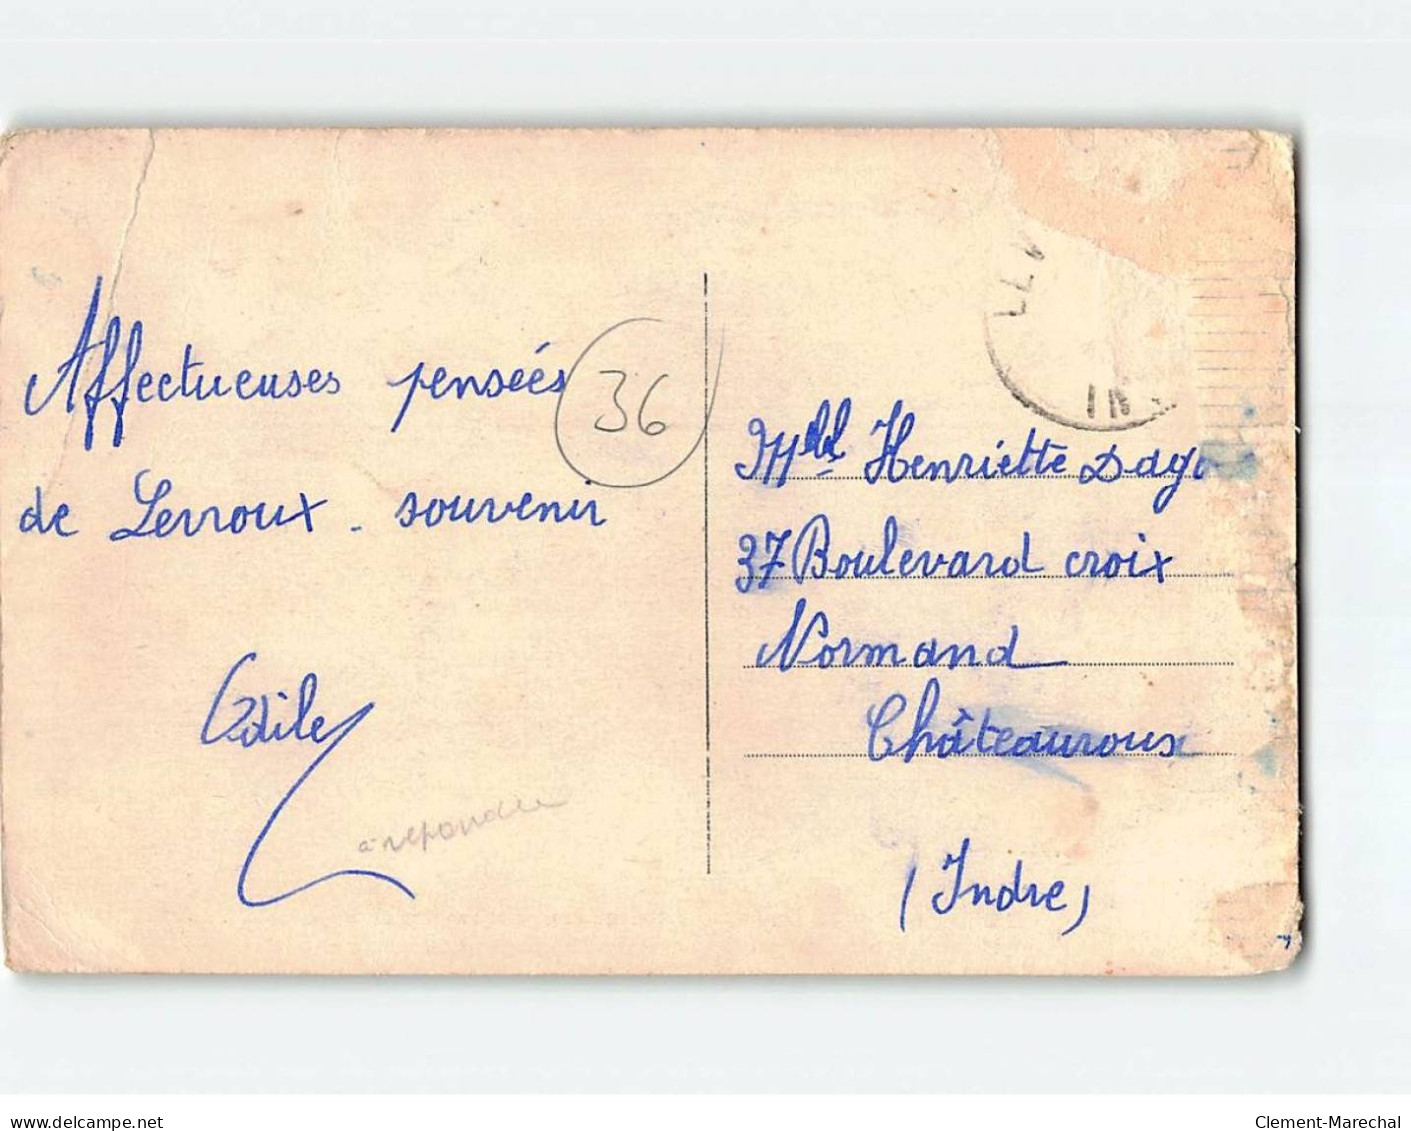 Affectueuses pensées
de Levroux - souvenir
Odile
à repondre
36
LEV
IN
Mlle Henriette
37 Boulevard croix
Normand
Châteauroux
(Indre)
www.delcampe.net
Clement-Marechal